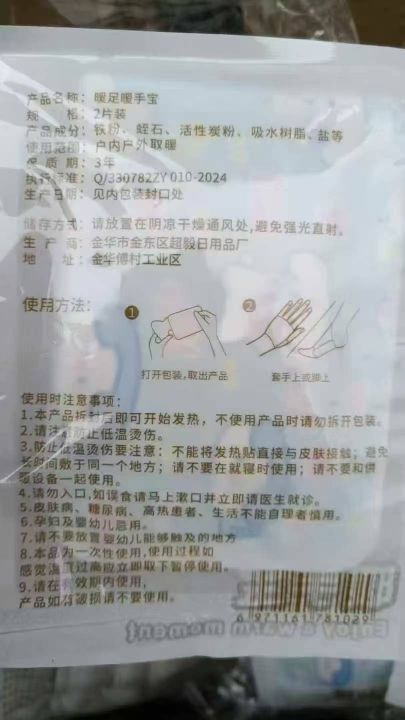 产品名称：暖足暖手宝
规 格：2片装
产品成分：铁粉、蛭石、活性炭粉、吸水树脂、盐等
使用范围：户内户外取暖
保 质 期：3年
执行标准：Q/330782ZY 010-2024
生产日期：见内包装封口处
储存方式：请放置在阴凉干燥通风处,避免强光直射。
生 产 商：金华市金东区超毅日用品厂
地 址：金华傅村工业区
使用方法：
1 2
打开包装,取出产品 套手上或脚上
使用时注意事项：
1.本产品拆封后即可开始发热，不使用产品时请勿拆开包装。
2.请注意防止低温烫伤。
3.防止低温烫伤要注意：不能将发热贴直接与皮肤接触；避免
长时间敷于同一个地方；请不要在就寝时使用；请不要和供
暖设备一起使用。
4.请勿入口,如误食请马上漱口并立即请医生就诊。
5.皮肤病、糖尿病、高热患者、生活不能自理者慎用。
6.孕妇及婴幼儿忌用。
7.请不要放置婴幼儿能够触及的地方
8.本品为一次性使用,使用过程如
感觉温度过高应立即取下暂停使用。
9.请在有效期内使用,
产品如有破损请不要使用。
6 971161 781029
Enjoy a warm moment